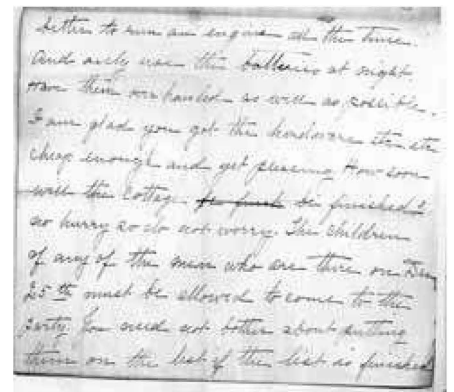 better to run an engine all the time.
And only use the batteries at night
Have them overhauled as well as possible.
I am glad you got the hardware etc etc
cheap enough and yet pleasing How soon
will the cottage be finished?
no hurry so do not worry. The children
of any of the men who are there on Dec
25th must be allowed to come to the
party. You need not bother about putting
them on the list if the list is finished